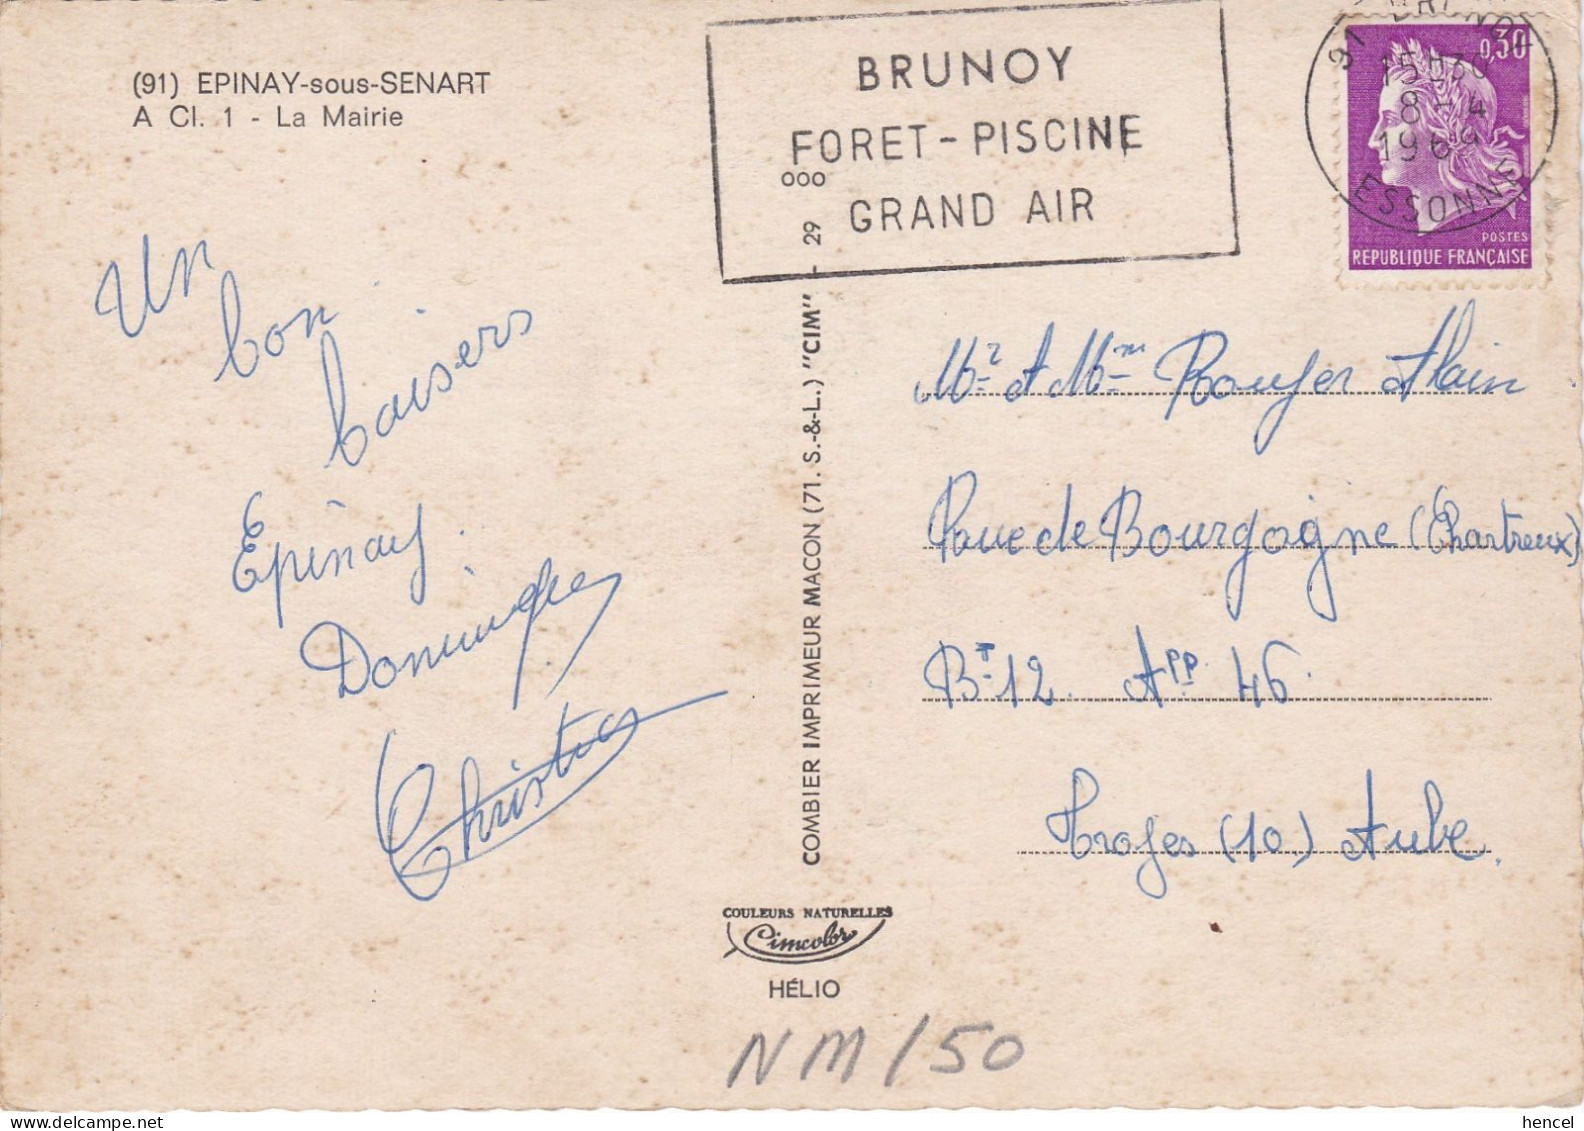 (91) EPINAY-sous-SENART
A Cl. 1 - La Mairie
BRUNOY
FORET - PISCINE
GRAND AIR
91 BRUNOY
15H30
8 - 4
1969
ESSONNE
0,30
POSTES
REPUBLIQUE FRANÇAISE
Un
bon
baisers
Epinay.
Dominique
Christian
COMBIER IMPRIMEUR MACON (71. S.-&-L.) "CIM" - 29
ooo
Mr et Mme Rouyer Alain
Rue de Bourgogne (Chartreux)
Bt 12 App. 46.
Troyes (10) Aube.
COULEURS NATURELLES
Cimcolor
HÉLIO
NM/50
hencel